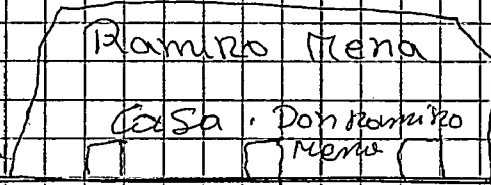 Ramiro Mena
Casa . Don Ramiro
Mena